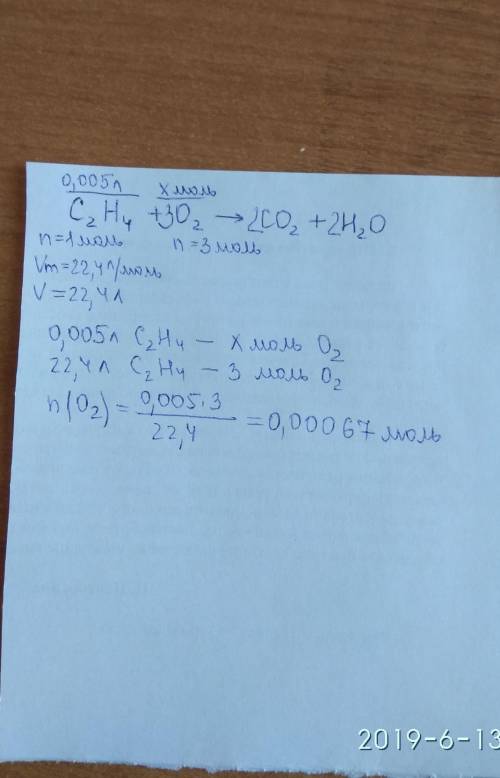 0,005л  х моль
C₂H₄ + 3O₂ → 2CO₂ + 2H₂O
n = 1 моль  n = 3 моль
Vm = 22,4 л/моль
V = 22,4 л
0,005л C₂H₄ — х моль O₂
22,4 л C₂H₄ — 3 моль O₂
n(O₂) = 0,005·3 / 22,4 = 0,00067 моль
2019-6-13